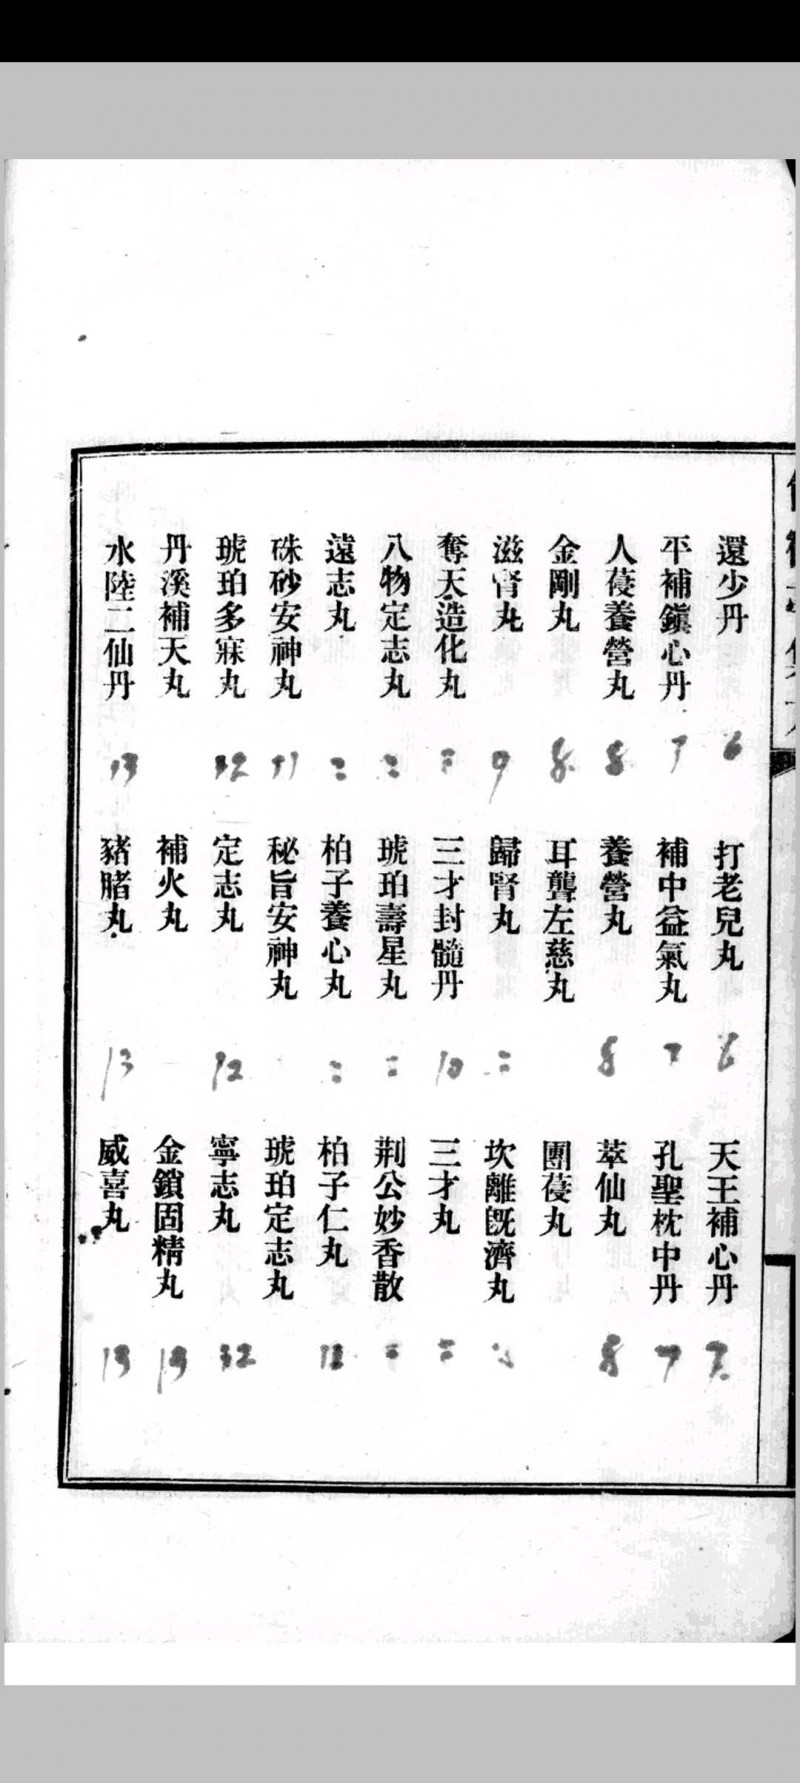 還少丹 6
打老兒丸 6
天王補心丹 7
平補鎭心丹 7
補中益氣丸 7
孔聖枕中丹 7
人葠養營丸 8
養營丸 8
萃仙丸 8
金剛丸 8
耳聾左慈丸
團葠丸
滋腎丸 9
歸腎丸 =
坎離旣濟丸
奪天造化丸 =
三才封髓丹 10
三才丸 =
八物定志丸 =
琥珀壽星丸 =
荆公妙香散 =
遠志丸 =
柏子養心丸 =
柏子仁丸 12
硃砂安神丸 11
秘旨安神丸
琥珀定志丸
琥珀多寐丸 12
定志丸 12
寧志丸 12
丹溪補天丸
補火丸
金鎖固精丸 13
水陸二仙丹 13
豬脂丸 13
威喜丸 13